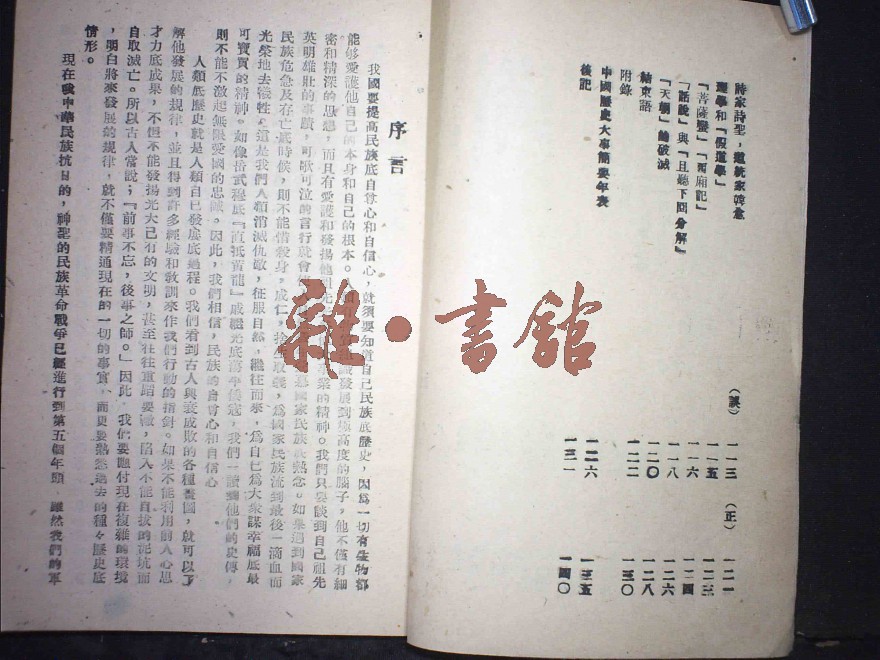 詩家詩聖，道統家韓愈
理學和『假道學』
『菩薩蠻』『西廂記』
『話說』與『且聽下回分解』
『天朝』的破滅
結束語
附錄
中國歷史大事簡要年表
後記
（誤）
一一三
一一五
一一六
一一八
一二〇
一二二
一二六
一三一
（正）
一二一
一二三
一二四
一二六
一二八
一三〇
一三五
一四〇
雜·書館
序言
我國要提高民族底自尊心和自信心，就須要知道自己民族底歷史，因爲一切有生物都
能够愛護他自己的本身和自己的根本。發展到極高度的腦子，他不僅有細
密和精深的思想，而且有愛護和發揚他祖先業的精神。我們只要談到自己祖先
英明雄壯的事蹟，可歌可泣的言行就會爲國家民族熱念。如果遇到國家
民族危急及存亡底時候，則不能借殺身，成仁，捨取義，爲國家民族流到最後一滴血而
光榮地去犧牲。這是我們人類消滅仇敵，征服自然，繼往而來，爲自己爲大衆謀幸福底最
可寶貴的精神。如像岳武穆底『直抵黃龍』戚繼光底蕩平倭寇，我們一讀到他們的史傳，
則不能不激起無限愛國的忠誠。因此，我們相信，民族的自尊心和自信心
人類底歷史就是人類自己發展底過程。我們看到古人興衰成敗的各種畫圖，就可以了
解他發展的規律，並且得到許多經驗和敎訓來作我們行動的指針。如果不能利用前人心思
才力底成果，不但不能發揚光大已有的文明，甚至往往重蹈覆轍，陷入不能自拔的泥坑而
自取滅亡。所以古人常說；『前事不忘，後事之師。』因此，我們要應付現在複雜的環境
，明白將來發展的規律，就不僅要精通現在的一切的事實，而更要熟悉過去的種々歷史底
情形。
現在我中華民族抗日的，神聖的民族革命戰爭已經進行到第五個年頭，雖然我們的軍